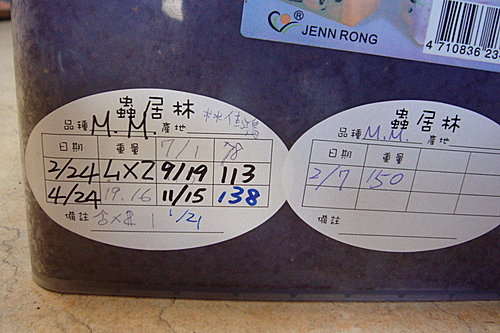 ® JENN RONG
4 710836 23
蟲居林
品種 M.M. 產地
日期 重量 7/1 78
2/24 L1X2 9/19 113
4/24 19.16 11/15 138
備註 1/21
蟲居林
品種 M.M. 產地
日期 重量
2/7 150
備註